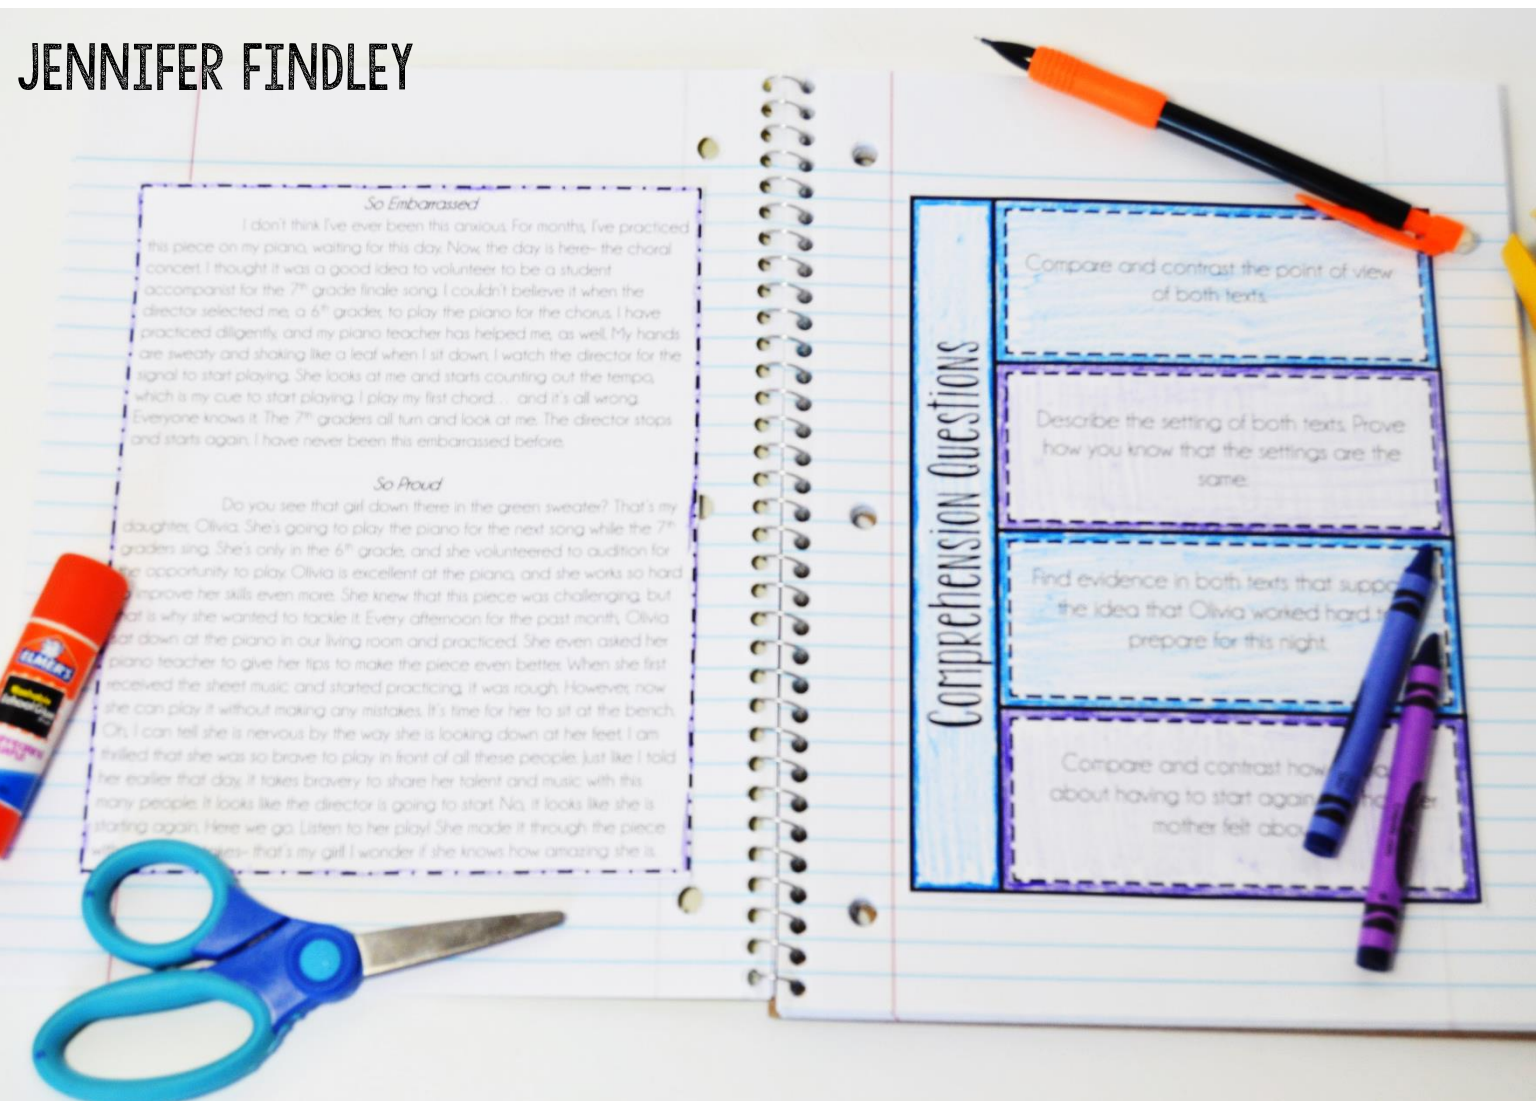 JENNIFER FINDLEY
So Embarrassed
I don't think I've ever been this anxious. For months, I've practiced
this piece on my piano, waiting for this day. Now, the day is here- the choral
concert. I thought it was a good idea to volunteer to be a student
accompanist for the 7th grade finale song. I couldn't believe it when the
director selected me, a 6th grader, to play the piano for the chorus. I have
practiced diligently, and my piano teacher has helped me, as well. My hands
are sweaty and shaking like a leaf when I sit down. I watch the director for the
signal to start playing. She looks at me and starts counting out the tempo,
which is my cue to start playing. I play my first chord. . . and it's all wrong.
Everyone knows it. The 7th graders all turn and look at me. The director stops
and starts again. I have never been this embarrassed before.
So Proud
Do you see that girl down there in the green sweater? That's my
daughter, Olivia. She's going to play the piano for the next song while the 7th
graders sing. She's only in the 6th grade, and she volunteered to audition for
the opportunity to play. Olivia is excellent at the piano, and she works so hard
improve her skills even more. She knew that this piece was challenging, but
that is why she wanted to tackle it. Every afternoon for the past month, Olivia
sat down at the piano in our living room and practiced. She even asked her
piano teacher to give her tips to make the piece even better. When she first
received the sheet music and started practicing, it was rough. However, now
she can play it without making any mistakes. It's time for her to sit at the bench.
Oh, I can tell she is nervous by the way she is looking down at her feet. I am
thrilled that she was so brave to play in front of all these people. Just like I told
her earlier that day, it takes bravery to share her talent and music with this
many people. It looks like the director is going to start. No, it looks like she is
starting again. Here we go. Listen to her play! She made it through the piece
that's my girl! I wonder if she knows how amazing she is.
ELMER'S
Washable
School Glue
Comprehension Questions
Compare and contrast the point of view
of both texts.
Describe the setting of both texts. Prove
how you know that the settings are the
same.
Find evidence in both texts that suppo
the idea that Olivia worked hard t
prepare for this night.
Compare and contrast how
about having to start again
mother felt abou